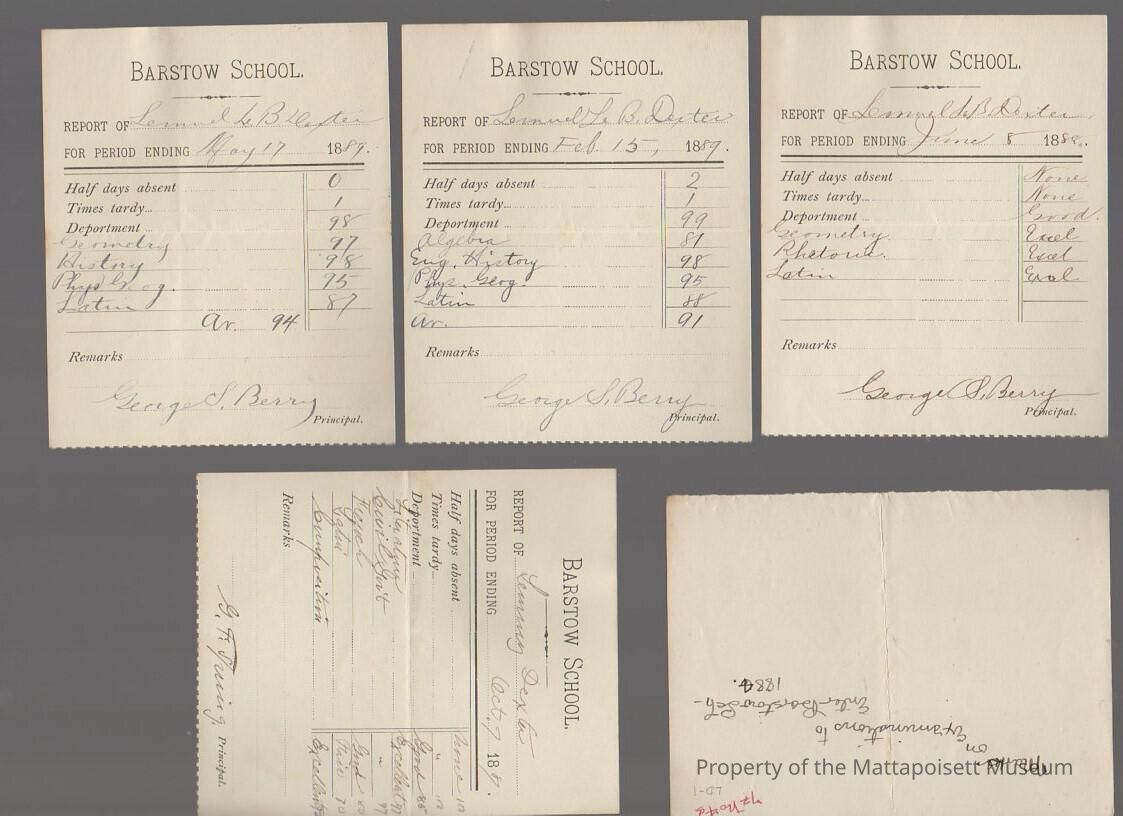 BARSTOW SCHOOL.
REPORT OF Lemuel Le B Dexter
FOR PERIOD ENDING May 17 1889.
Half days absent 0
Times tardy... 1
Department 98
Geometry 97
History 98
Phys Geog. 95
Latin 87
Av. 94
Remarks
George S. Berry
Principal.
BARSTOW SCHOOL.
REPORT OF Lemuel Le B. Dexter
FOR PERIOD ENDING Feb. 15, 1889.
Half days absent 2
Times tardy... 1
Department 99
Algebra 81
Eng. History 98
Phys. Geog. 95
Latin 88
Av. 91
Remarks
George S. Berry
Principal.
BARSTOW SCHOOL.
REPORT OF Lemuel Le B. Dexter
FOR PERIOD ENDING June 8 188
Half days absent None
Times tardy... None
Department Good.
Geometry. Excel
Rhetoric. Excel
Latin Excel
Remarks
George S. Berry
Principal.
BARSTOW SCHOOL.
REPORT OF Lemmy Dexter
FOR PERIOD ENDING Oct. 7 18
Half days absent None
Times tardy...
Department Good
Excellent
Civil Gov't
French Good
Latin
Composition Excellent
Remarks
Principal.
on
Examinations to
Enter Barstow Sch-
1884.
Property of the Mattapoisett Museum
LD-1